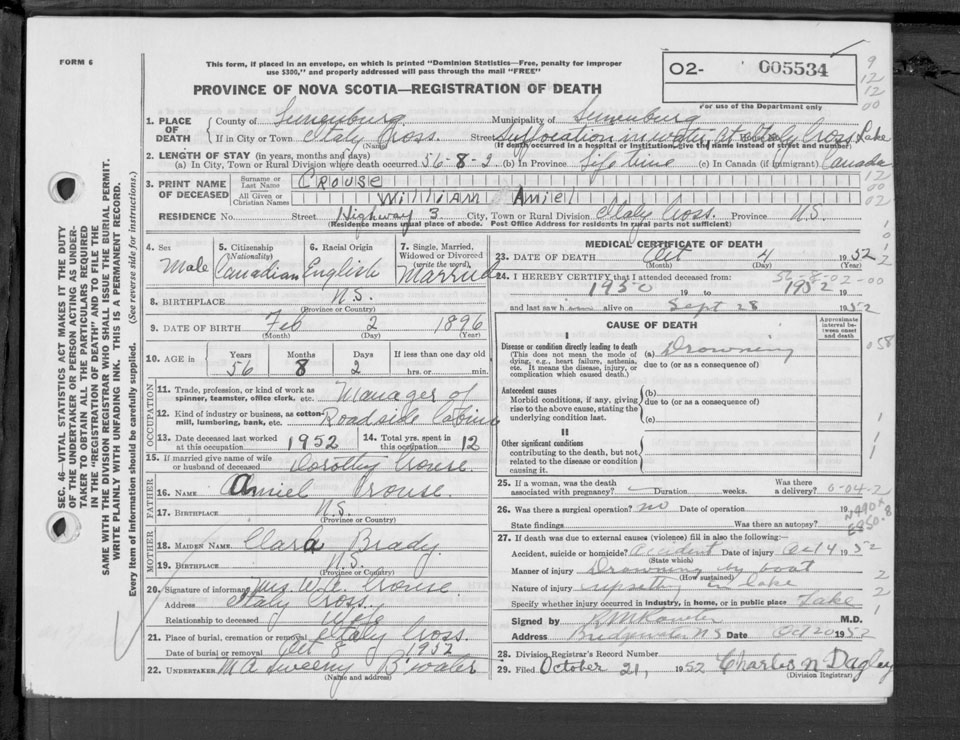 FORM 6
This form, if placed in an envelope, on which is printed "Dominion Statistics—Free, penalty for improper
use $300," and properly addressed will pass through the mail "FREE"
02- 005534
PROVINCE OF NOVA SCOTIA—REGISTRATION OF DEATH
For use of the Department only
9
12
12
00
1. PLACE OF DEATH
County of Lunenburg Municipality of Lunenburg
If in City or Town Italy Cross. Street Suffocation in water at Italy Cross Lake
(Name) (If death occurred in a hospital or institution, give the name instead of street and number)
2. LENGTH OF STAY (in years, months and days)
(a) In City, Town or Rural Division where death occurred 56-8-2 (b) In Province Life time (c) In Canada (if immigrant) Canada
3. PRINT NAME OF DECEASED
Surname or Last Name CROUSE
All Given or Christian Names William Amiel
12
00
02
RESIDENCE No. Street Highway 3 City, Town or Rural Division Italy Cross. Province N.S.
(Residence means usual place of abode. Post Office Address for residents in rural parts not sufficient)
SEC. 46—VITAL STATISTICS ACT MAKES IT THE DUTY
OF THE UNDERTAKER OR PERSON ACTING AS UNDER-
TAKER TO OBTAIN ALL THE PARTICULARS REQUIRED
IN THE "REGISTRATION OF DEATH" AND TO FILE THE
SAME WITH THE DIVISION REGISTRAR WHO SHALL ISSUE THE BURIAL PERMIT.
WRITE PLAINLY WITH UNFADING INK. THIS IS A PERMANENT RECORD.
Every item of information should be carefully supplied. (See reverse side for instructions.)
4. Sex Male
5. Citizenship (Nationality) Canadian
6. Racial Origin English
7. Single, Married, Widowed or Divorced (write the word) Married
8. BIRTHPLACE N.S.
(Province or Country)
9. DATE OF BIRTH Feb 2 1896
(Month) (Day) (Year)
10. AGE in Years 56 Months 8 Days 2 If less than one day old
hrs. or min.
OCCUPATION
11. Trade, profession, or kind of work as
spinner, teamster, office clerk, etc. Manager of
12. Kind of industry or business, as cotton-
mill, lumbering, bank, etc. Roadside Cabins
13. Date deceased last worked
at this occupation 1952
14. Total yrs. spent in
this occupation 12
15. If married give name of wife
or husband of deceased Dorothy Crouse
FATHER
16. NAME Amiel Crouse.
17. BIRTHPLACE N.S.
(Province or Country)
MOTHER
18. MAIDEN NAME Clara Brady.
19. BIRTHPLACE N.S.
(Province or Country)
20. Signature of informant Mrs. W.A. Crouse.
Address Italy Cross.
Relationship to deceased Wife
21. Place of burial, cremation or removal Italy Cross.
Date of burial or removal Oct 8 1952
22. UNDERTAKER M A Sweeny B'water
(Name and address)
MEDICAL CERTIFICATE OF DEATH
23. DATE OF DEATH Oct 4 1952
(Month) (Day) (Year)
56-8-02-00
24. I HEREBY CERTIFY that I attended deceased from:
1950 19 to 1952 19
and last saw h alive on Sept 28 1952
CAUSE OF DEATH
Approximate interval between onset and death
I
Disease or condition directly leading to death
(This does not mean the mode of dying, e.g., heart failure, asthenia, etc. It means the disease, injury, or complication which caused death.)
(a) Drowning
due to (or as a consequence of)
058
Antecedent causes
Morbid conditions, if any, giving rise to the above cause, stating the underlying condition last.
(b)
due to (or as a consequence of)
(c)
II
Other significant conditions
contributing to the death, but not related to the disease or condition causing it.
25. If a woman, was the death
associated with pregnancy? Duration weeks. Was there
a delivery? 0-04-2
26. Was there a surgical operation? no Date of operation 19
State findings Was there an autopsy?
N990X
E850.8
27. If death was due to external causes (violence) fill in also the following:
Accident, suicide or homicide? Accident Date of injury Oct 4 1952
(State which)
Manner of injury Drowning by boat
(How sustained)
Nature of injury upsetting in lake
Specify whether injury occurred in industry, in home, or in public place Lake
Signed by M.D.
Address Bridgewater N S Date Oct 20 1952
28. Division Registrar's Record Number
29. Filed October 21, 1952 Charles N Dagley
(Division Registrar)